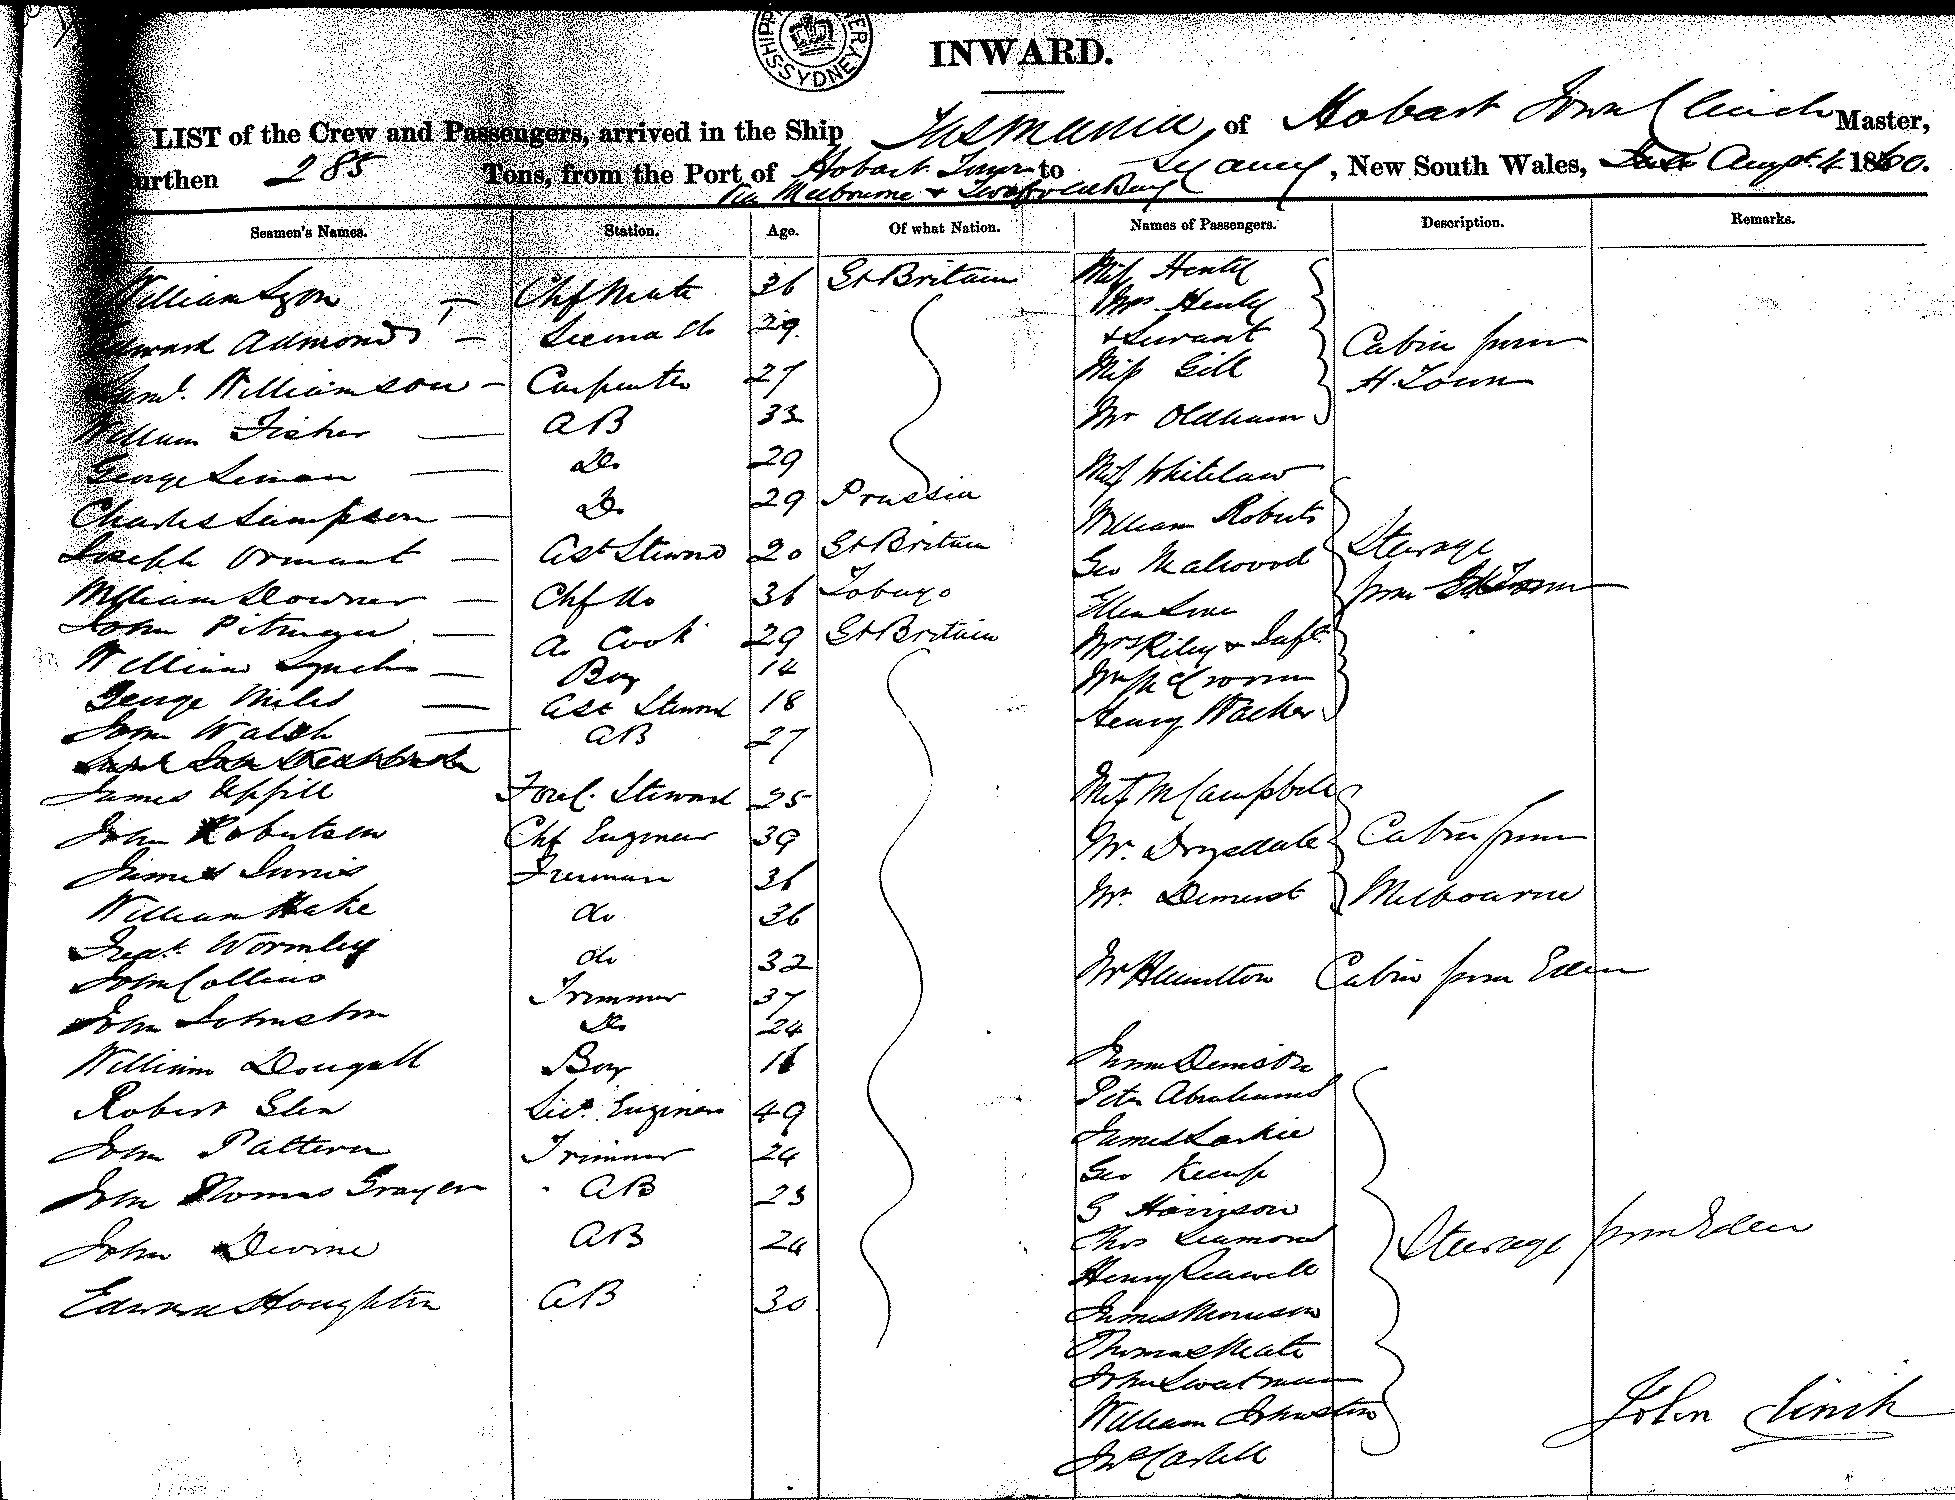 SYDNEY
INWARD.
LIST of the Crew and Passengers, arrived in the Ship Tasmania, of Hobart Town Clinch Master,
urthen 285 Tons, from the Port of Hobart Town to Sydney, New South Wales, Augst 4 1860.
Via Melbourne & Twofold Bay
Seamen's Names. Station. Age. Of what Nation. Names of Passengers. Description. Remarks.
William Lyon — Chf Mate 36 Gt Britain
Edward Admonds — Second do 29
Saml. Williamson — Carpenter 27
William Fisher — AB 33
George — Do 29
Charles Sampson — Do 29 Prussia
Joseph Ormant — Ast Steward 20 Gt Britain
William Downer — Chf do 36 Tobago
John — A. Cook 29 Gt Britain
William Lynch — Boy 14
George Miles — Ast Steward 18
John Walsh — AB 27
James Uphill Forec. Steward 25
John Robertson Chf Engineer 39
James Innis Fireman 36
William Hake do 36
Fredk. Wormley do 32
John Collins Trimmer 37
John Johnston Do 24
William Dougall Boy 16
Robert Glen Sec. Engineer 49
John Pattern Trimmer 24
John Thomas Grayson AB 23
John Devine AB 24
Edward Houghton AB 30
Miss Henty
Mrs Henty
& Servant
Miss Gill
Mr Oldham
Cabin from
H Town
Miss Whitelaw
William Roberts
Geo Malwood
Ellen
Mrs Riley & Inft.
Wm
Henry Walker
Steerage
from H Town
Miss McCampbell
Mr. Drysdale
Mr. Demest
Cabin from
Melbourne
Mr Hamilton Cabin from Eden
Denison
Peter Abrahams
James Larkie
Geo Kemp
G Harrison
Thos Leamond
Henry
James Morrison
Thomas Meate
John Swatman
William Johnston
Steerage from Eden
John Clinch